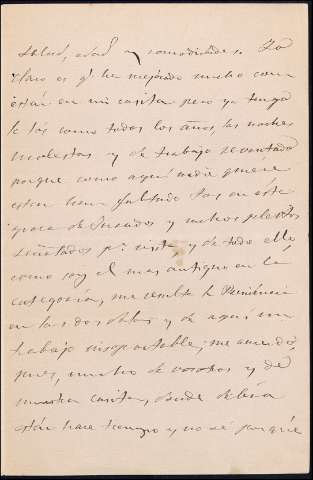 salud, edad y comodidades. Lo
claro es q.e he mejorado mucho con
estar en mi casita pero ya tengo
la tos como todos los años, las noches
molestas y de trabajo reventado
porque como aquí nadie quiere
estar han faltado dos en este
época de Jurados y muchos pleitos
señalados p.a vista y de todo ello
como soy el mas antiguo en la
categoría, me resulta la Presidencia
en las dos Salas y de aquí un
trabajo insoportable; me acuerdo,
pues, mucho de vosotros y de
nuestra casita, donde debía
estar hace tiempo y no sé porqué